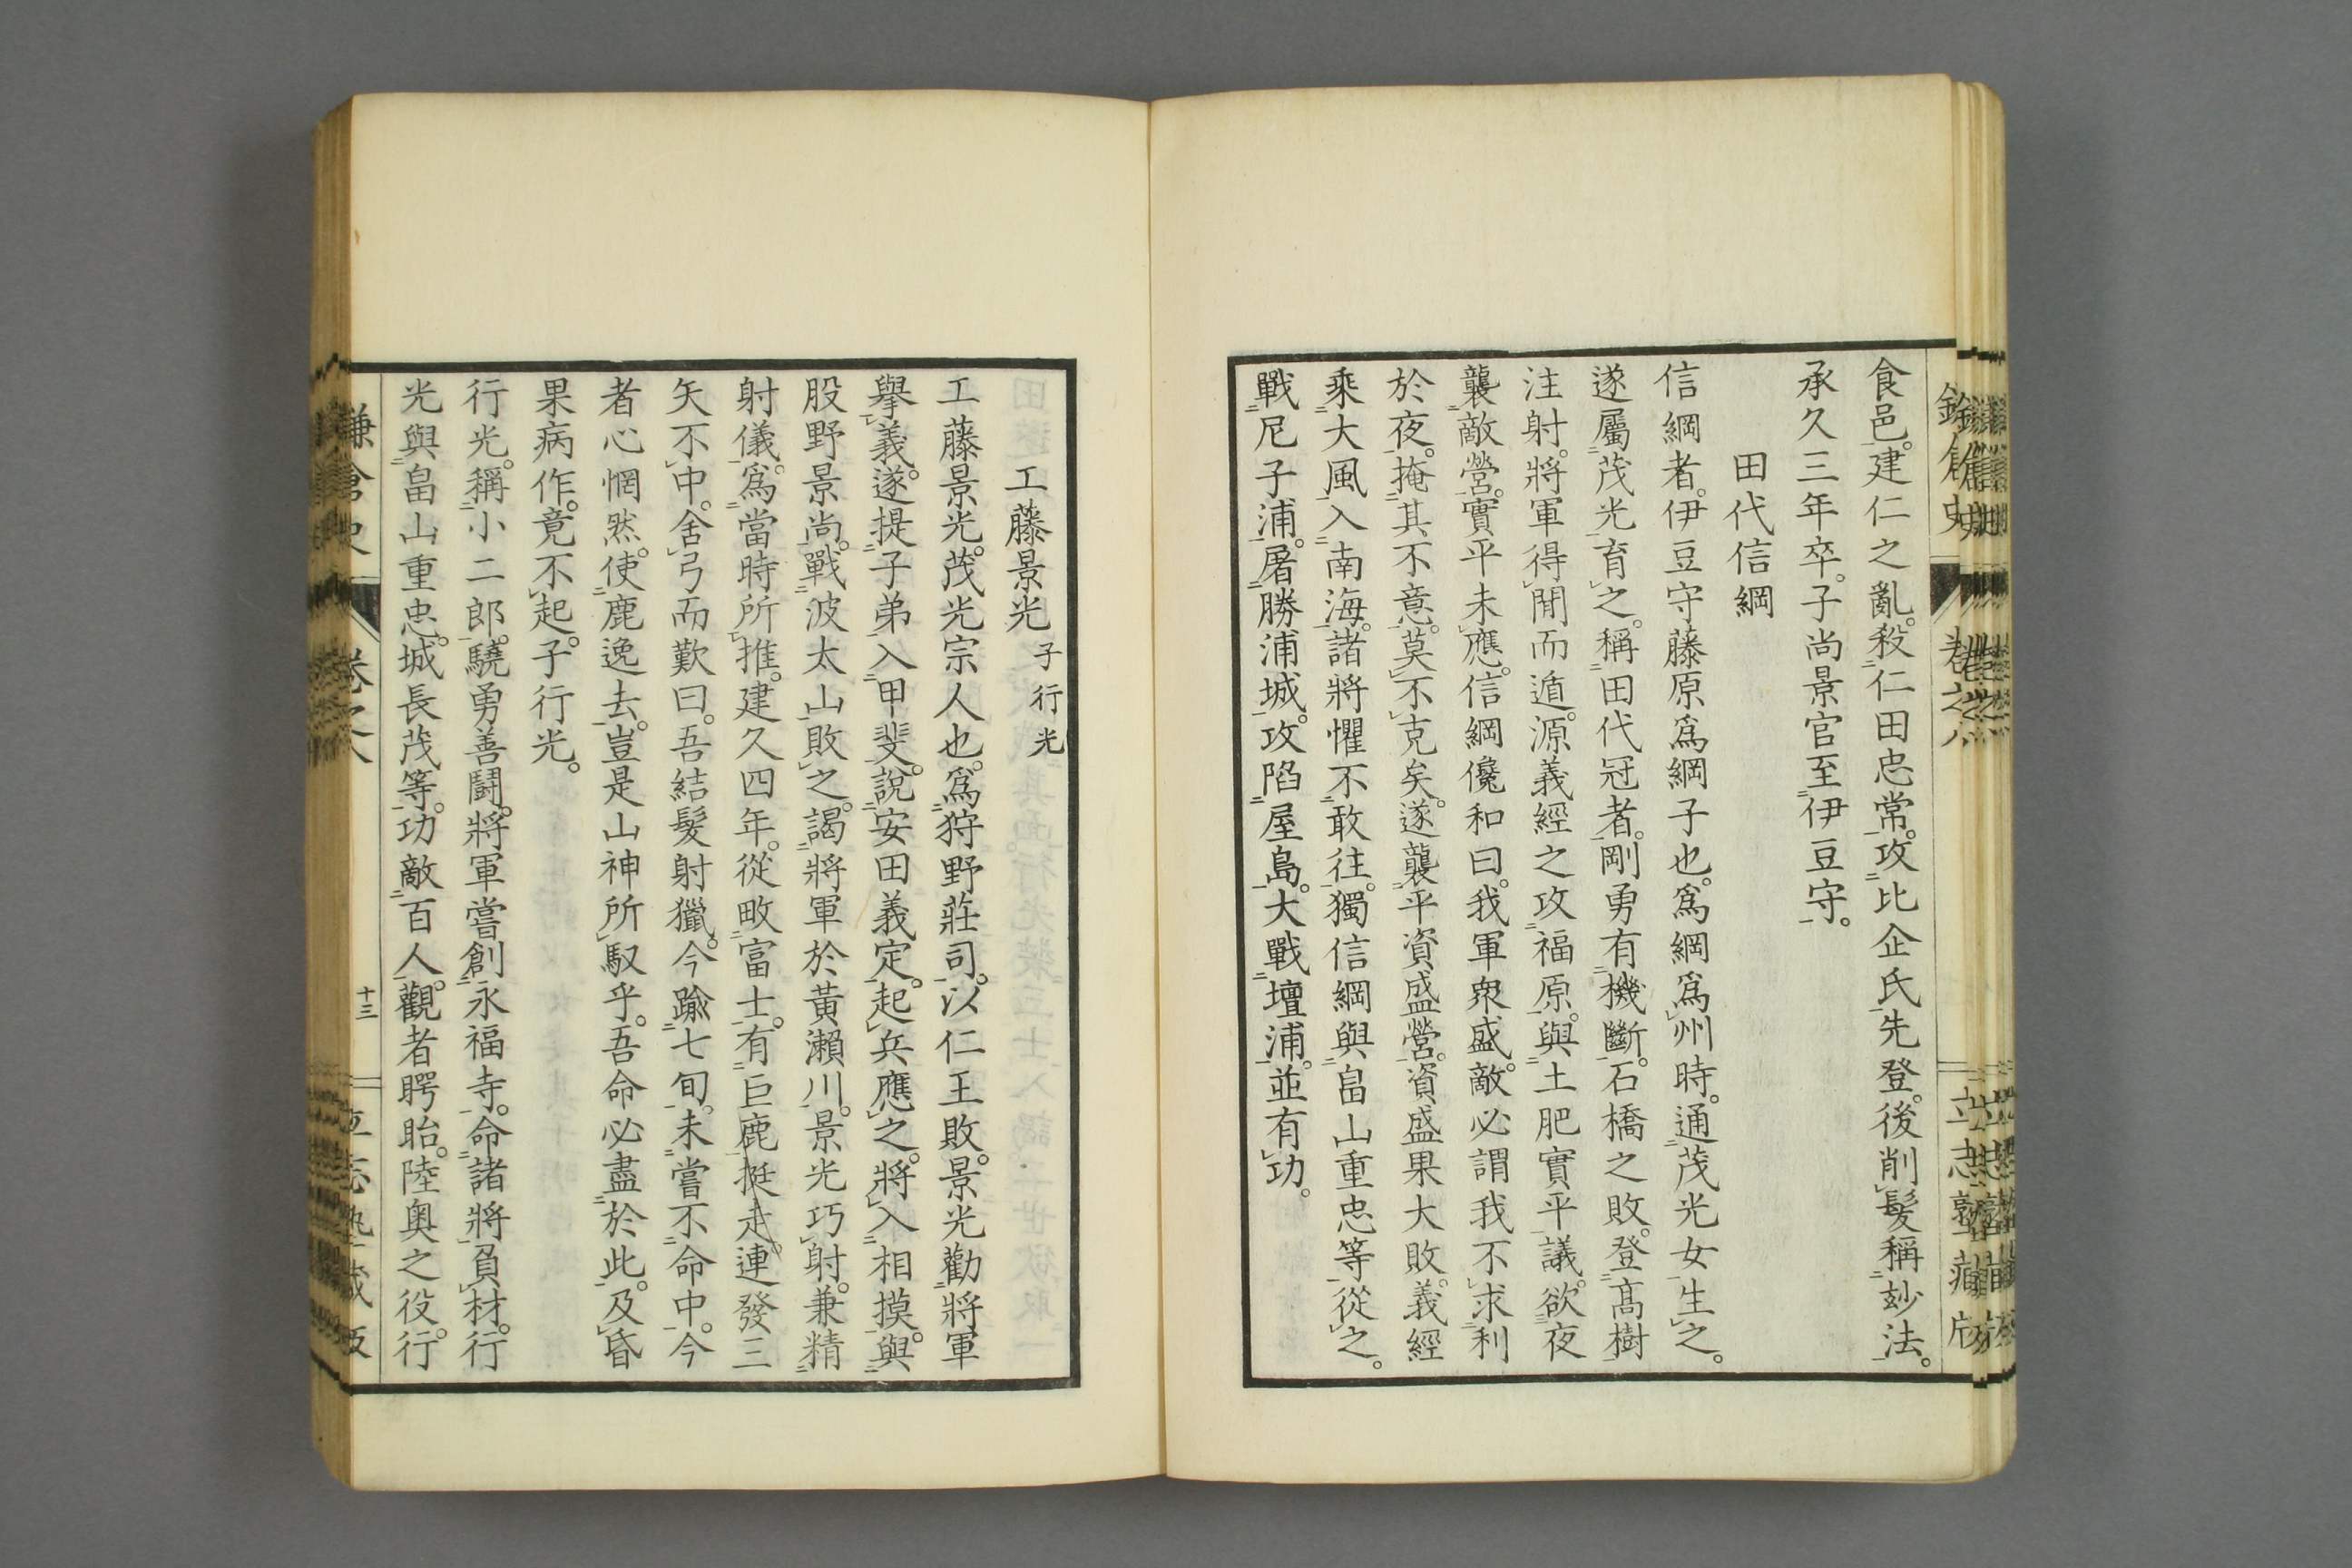 食邑。建仁之亂。殺仁田忠常。攻比企氏先登。後削髮稱玅法。
承久三年卒。子尚景官至伊豆守。
田代信綱
信綱者。伊豆守藤原爲綱子也。爲綱爲州時。通茂光女生之。
遂屬茂光育之。稱田代冠者。剛勇有機斷。石橋之敗。登髙樹
注射。將軍得間而遁。源義經之攻福原。與土肥實平議。欲夜
襲敵營。實平未應。信綱儳和曰。我軍衆盛。敵必謂我不求利
於夜。掩其不意。莫不克矣。遂襲平資盛營。資盛果大敗。義經
乘大風入南海。諸將懼不敢往。獨信綱與畠山重忠等從之。
戰尼子浦。屠勝浦城。攻陷屋島。大戰壇浦。並有功。
工藤景光 子行光
工藤景光。茂光宗人也。爲狩野莊司。以仁王敗。景光勸將軍
擧義。遂提子弟入甲斐。說安田義定。起兵應之。將入相摸。與
股野景尚。戰波太山敗之。謁將軍於黃瀨川。景光巧射。兼精
射儀。爲當時所推。建久四年。從畋富士。有巨鹿挺走。連發三
矢不中。舍弓而歎曰。吾結髮射獵。今踰七旬。未嘗不命中。今
者心惘然。使鹿逸去。豈是山神所馭乎。吾命必盡於此。及昏
果病作。竟不起。子行光。
行光。稱小二郎。驍勇善鬪。將軍嘗創永福寺。命諸將負材。行
光與畠山重忠。城長茂等。功敵百人。觀者瞪眙。陸奥之役。行
鎌倉史 卷之八 十三